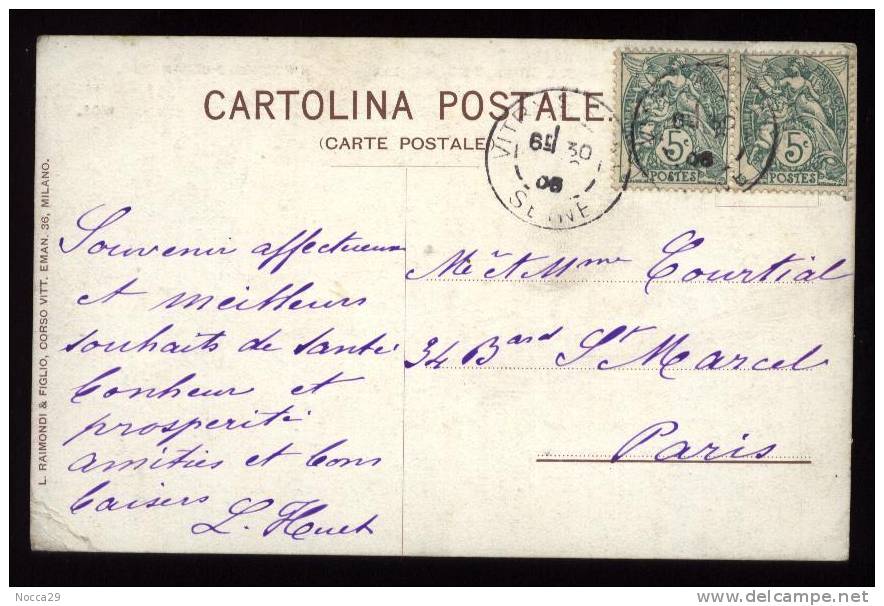 CARTOLINA POSTALE.
(CARTE POSTALE)
L. RAIMONDI & FIGLIO, CORSO VITT. EMAN. 36, MILANO.
Souvenir affectueux
et meilleurs
souhaits de santé
bonheur et
prosperité
amitiés et bons
baisers
L. Huet
Mr et Mme Courtial
34 Bard St Marcel
Paris
5c
POSTES
5c
POSTES
30
06
SEINE
Nocca29
www.delcampe.net